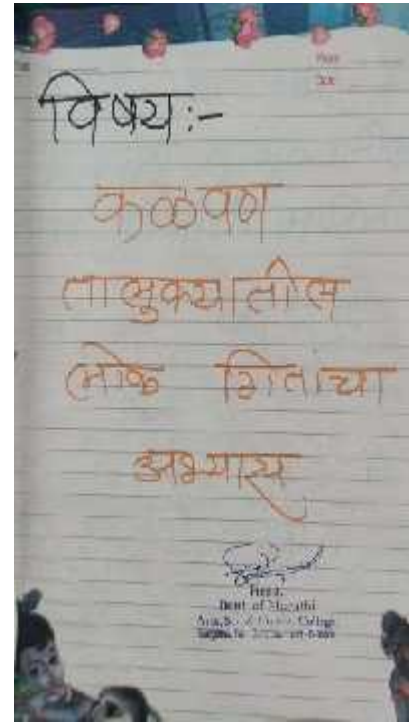 विषय:-
कळवण
तालुक्यातील
लोक गितांचा
अभ्यास
Head,
Dept. of Marathi